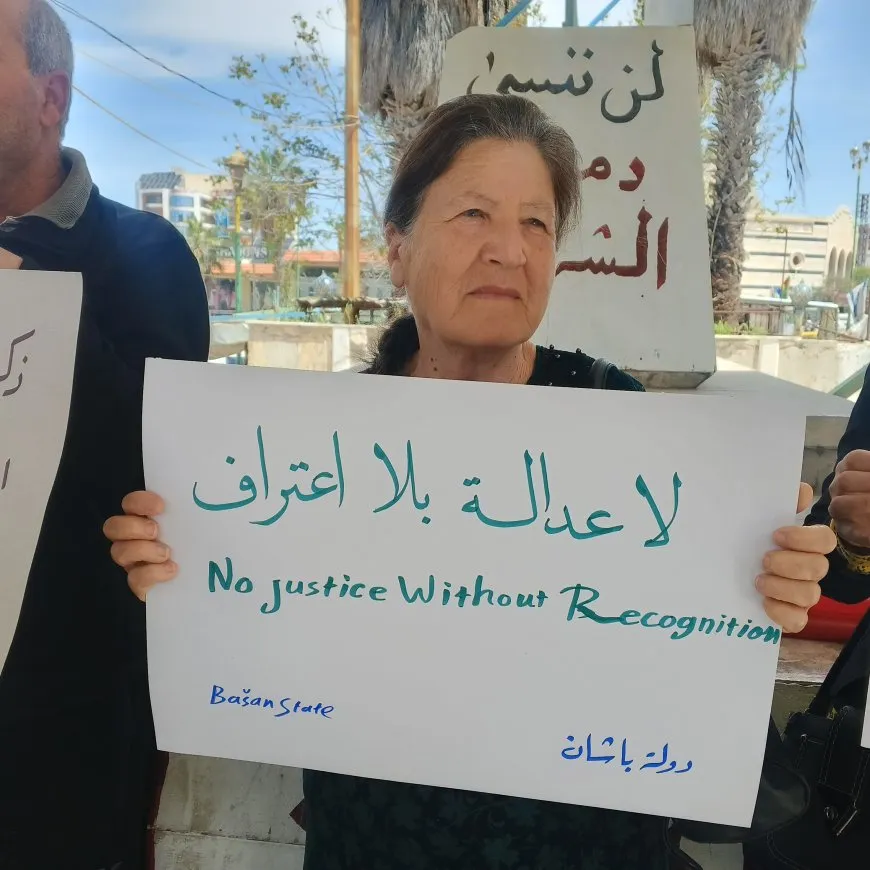 لن ننسى
لا عدالة بلا اعتراف
No justice Without Recognition
Bašan State
دولة باشان